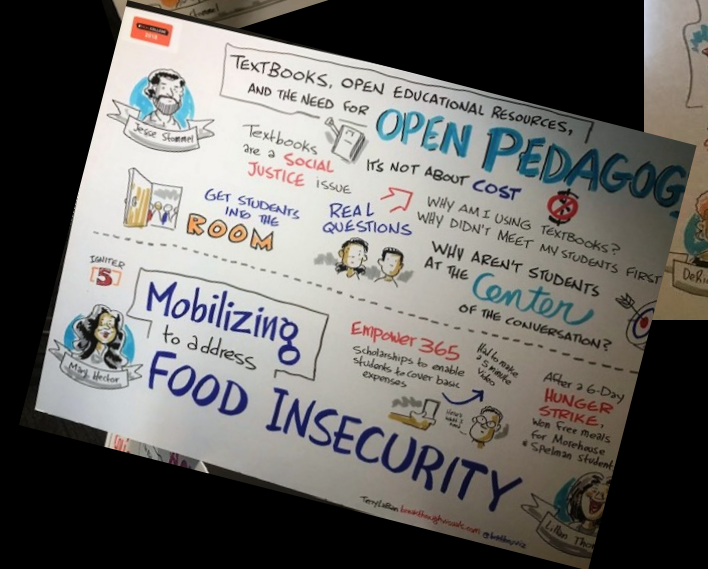 2018
TEXTBOOKS, OPEN EDUCATIONAL RESOURCES,
AND THE NEED FOR
OPEN PEDAGOG
Jesse Stommel
Textbooks
are a SOCIAL
JUSTICE ISSUE
IT'S NOT ABOUT COST
GET STUDENTS
INTO THE
ROOM
REAL
QUESTIONS
WHY AM I USING TEXTBOOKS?
WHY DIDN'T MEET MY STUDENTS FIRST
WHY AREN'T STUDENTS
AT THE Center
OF THE CONVERSATION?
IGNITER
5
Mary Hector
Mobilizing
to address
FOOD INSECURITY
Empower 365
Scholarships to enable
students to cover basic
expenses
Had to make
a 5 minute
video
AFTER a 6-DAY
HUNGER
STRIKE,
Won free meals
for Morehouse
& Spelman student
Lillian Thom